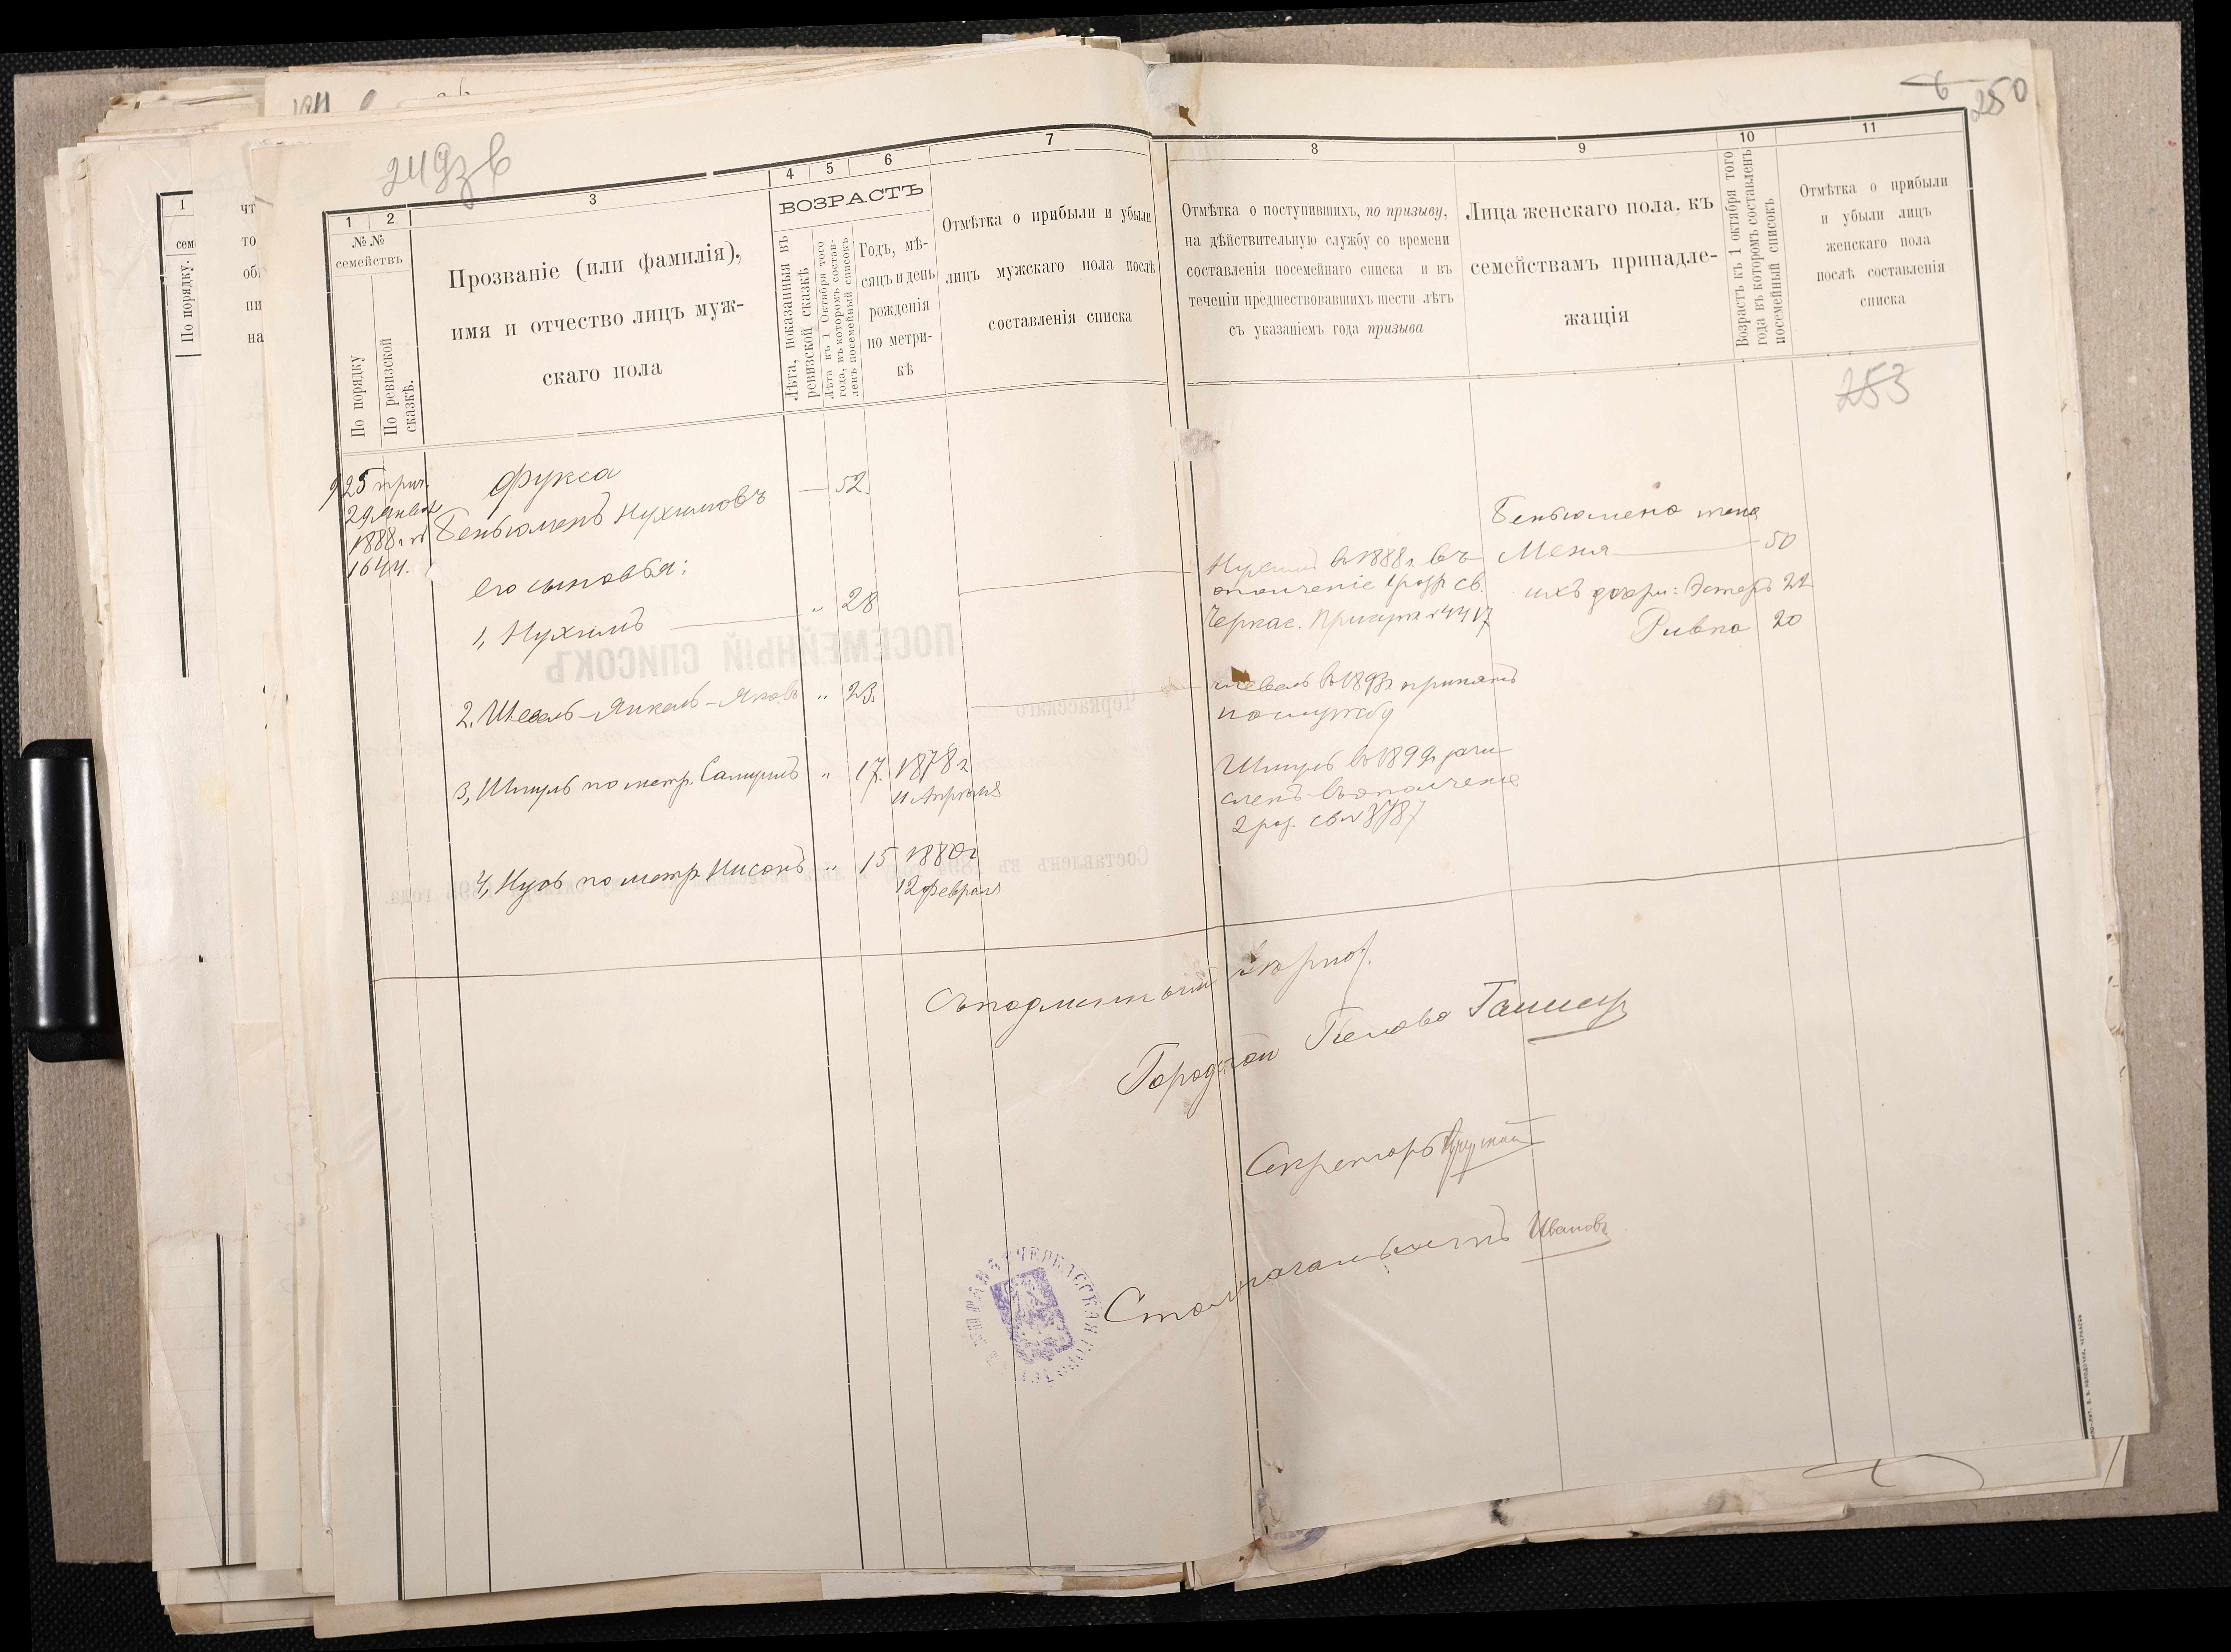 249 зв
250
1
2
3
4
5
6
7
8
9
10
11
№№ семействъ
По порядку
По ревизской сказкѣ.
Прозваніе (или фамилія),
имя и отчество лицъ муж-
скаго пола
ВОЗРАСТЪ
Лѣта, показанныя въ
ревизской сказкѣ
Лѣта къ 1 Октября того
года, въ которомъ состав-
ленъ посемейный списокъ
Годъ, мѣ-
сяцъ и день
рожденія
по метри-
кѣ
Отмѣтка о прибыли и убыли
лицъ мужскаго пола послѣ
составленія списка
Отмѣтка о поступившихъ, по призыву,
на дѣйствительную службу со времени
составленія посемейнаго списка и въ
теченіи предшествовавшихъ шести лѣтъ
съ указаніемъ года призыва
Лица женскаго пола, къ
семействамъ принадле-
жащія
Возрастъ къ 1 октября того
года въ которомъ составленъ
посемейный списокъ
Отмѣтка о прибыли
и убыли лицъ
женскаго пола
послѣ составленія
списка
253
925 прич.
29 Января
1888 г. №
1644.
Фукса
Беньюменъ Нухимовъ — 52.
его сыновья:
1, Нухимъ — " 28
2. Шевель-Янкель-Яковъ " 23.
3, Шмуль по метр. Самуилъ " 17. 1878 г
11 Апрѣля
4, Нусъ по метр. Нисонъ " 15 1880 г
12 февраля
Нухимъ въ 1888 г. въ
ополченіе 1 разр св.
Черкас. Присутс №4417
Шевель въ 1893 г принятъ
на службу
Шмуль въ 1899 г зачи-
сленъ въ ополченіе
2 раз. св №3787
Беньюмена жена
Меня — 50
ихъ дочери: Эстеръ 22
Ривка 20
Съ подлиннымъ вѣрно:
Городской Голова
Секретарь
Столоначальникъ Ивановъ
1
сем
По порядку.
чт
то
об
ни
на
ПОСЕМЕЙНЫЙ СПИСОКЪ
Черкасскаго